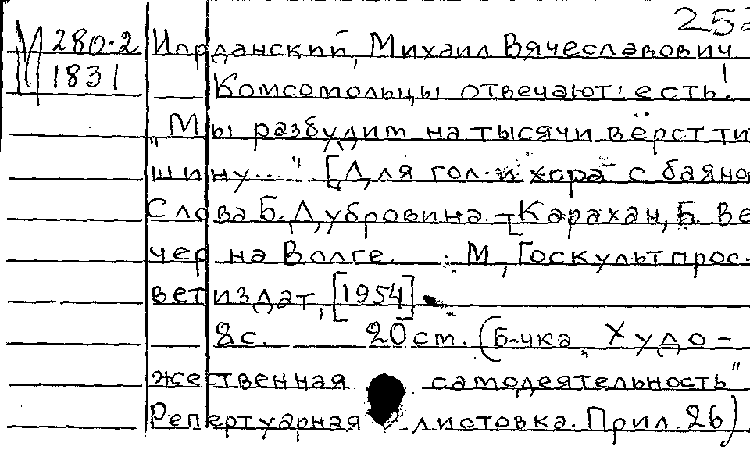 252
М 280-2 Иорданский, Михаил Вячеславович
1831 Комсомольцы отвечают: есть!
„Мы разбудим на тысячи вёрст ти
шину..." [Для гол. и хора с баяно
Слова Б. Дубровина. - [Карахан, Б. Ве
чер на Волге. М., Госкультпрос-
ветиздат, [1954].
2с. 20 ст. (Б-чка „Худо-
жественная самодеятельность"
Репертуарная листовка. Прил. 26)